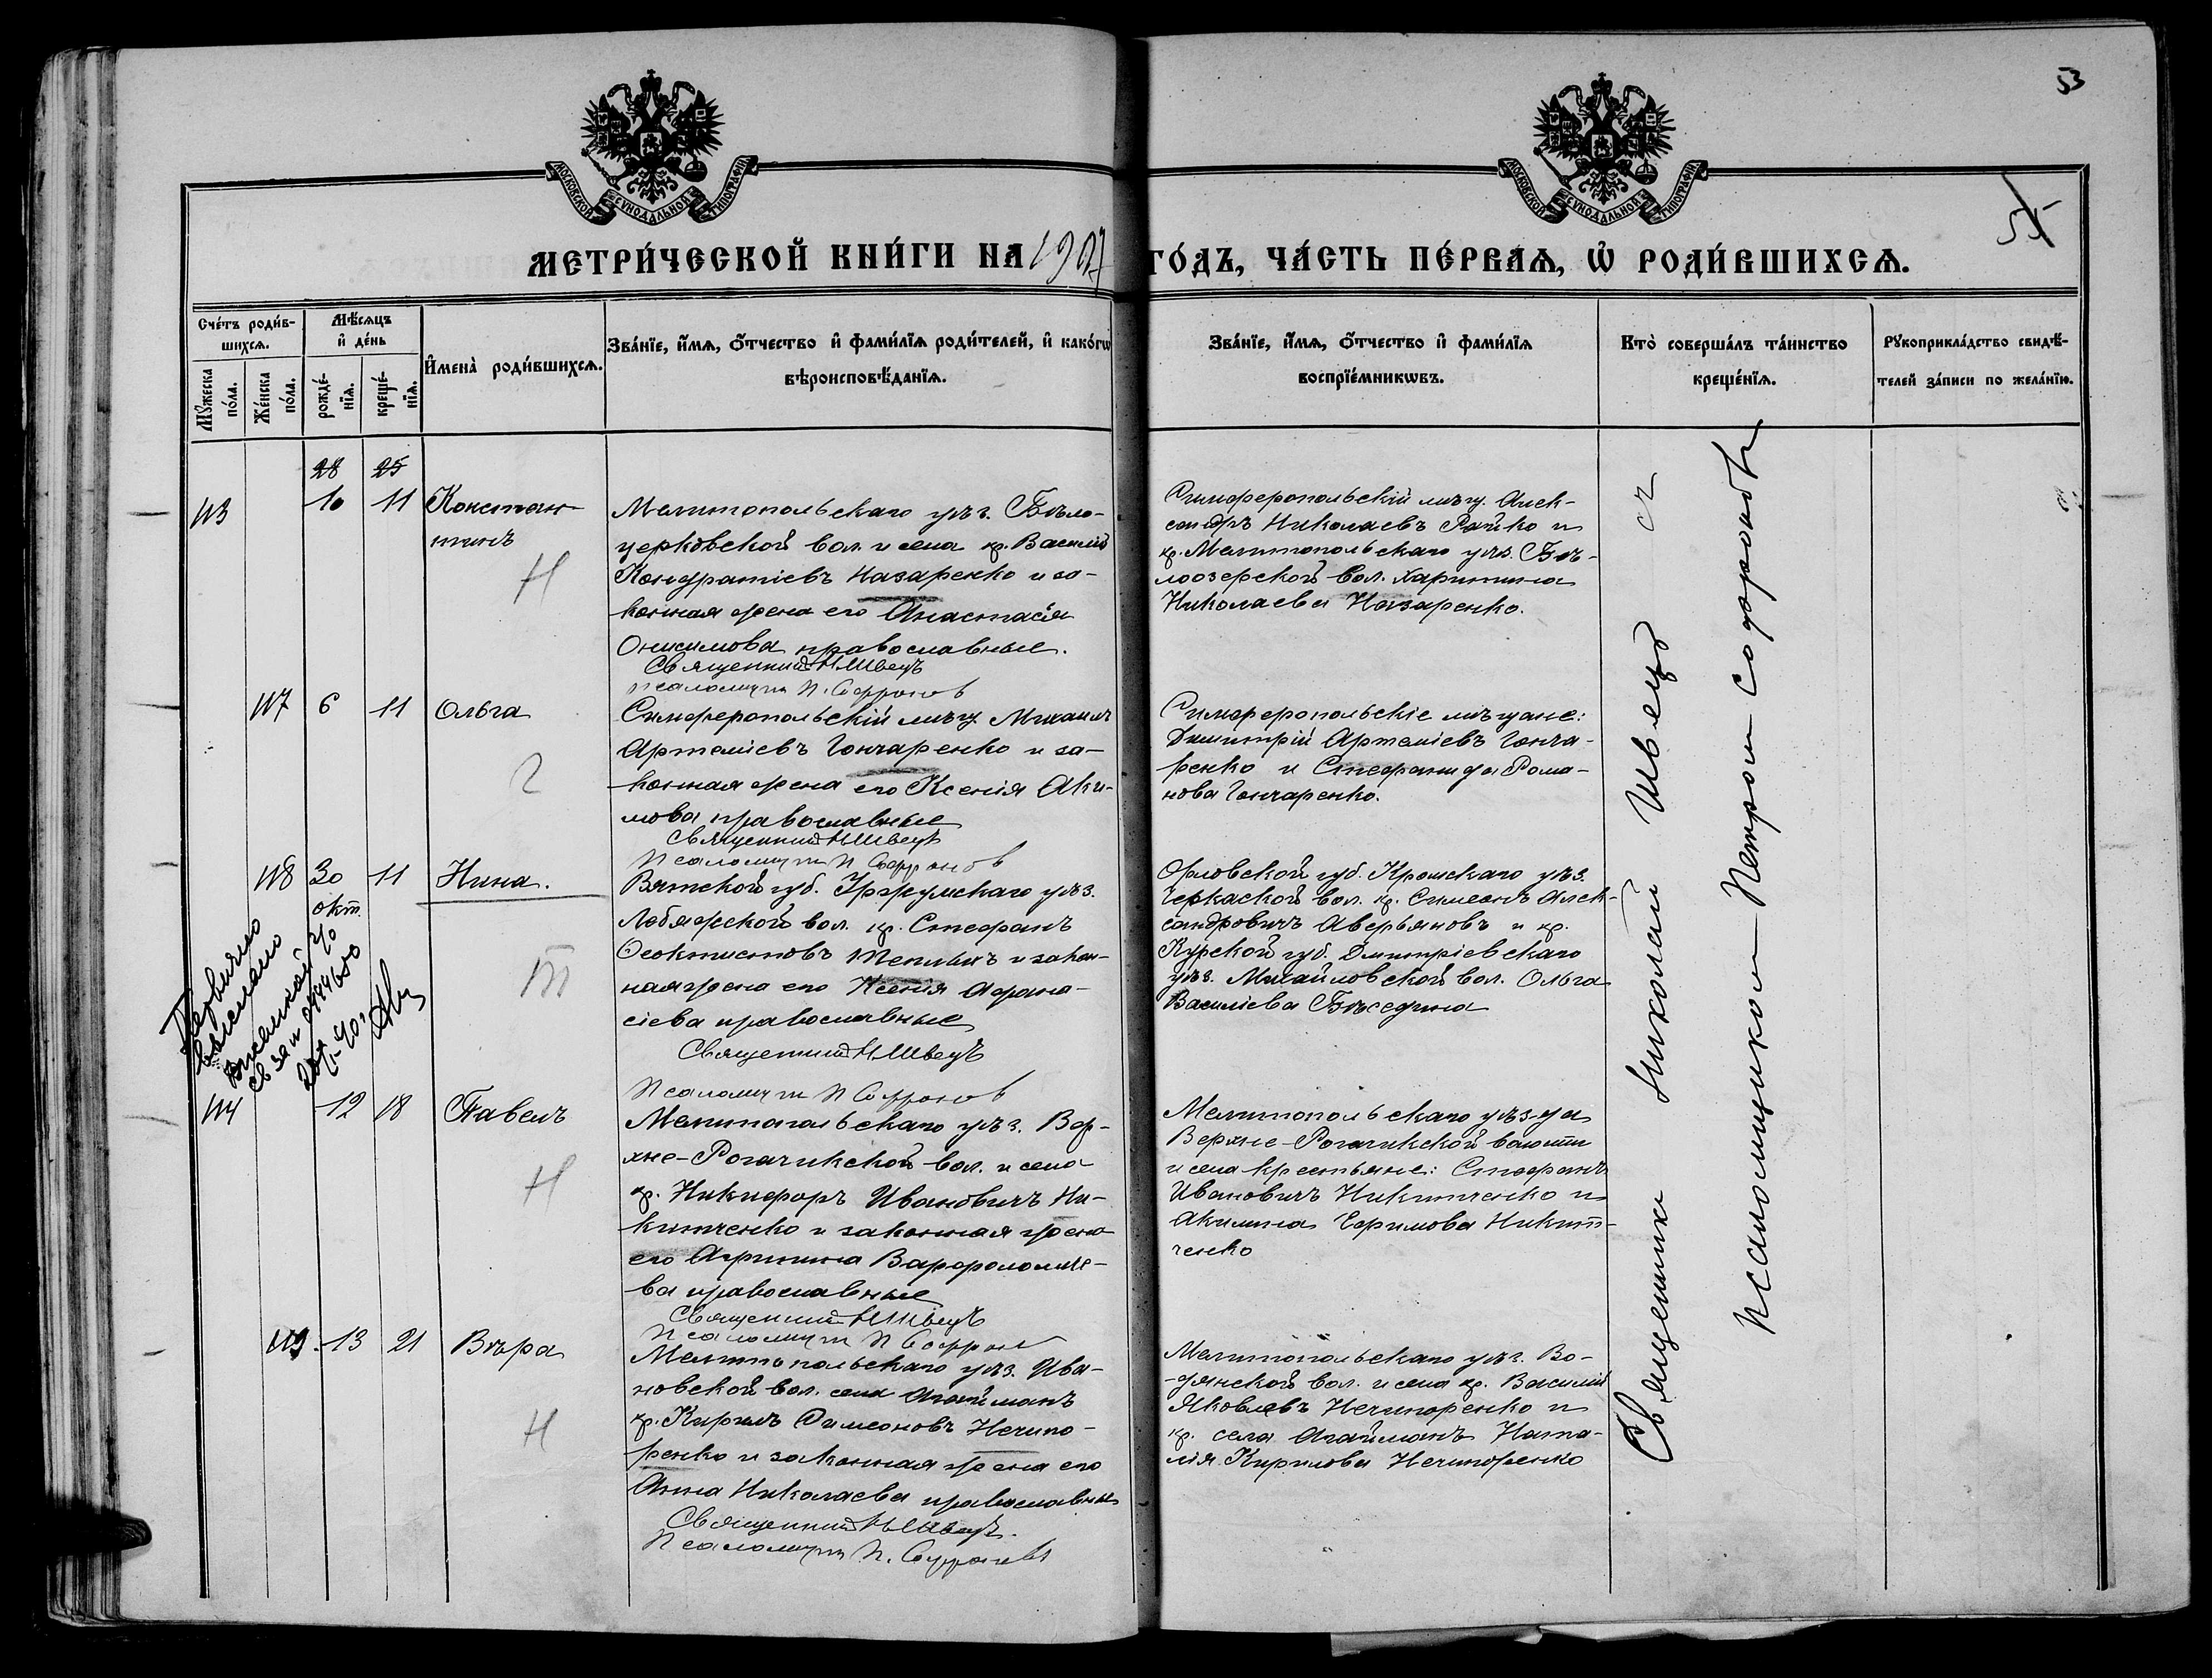 53
55
МОСКОВСКОЙ СѴНОДАЛЬНОЙ ТИПОГРАФІИ
МОСКОВСКОЙ СѴНОДАЛЬНОЙ ТИПОГРАФІИ
МЕТРИ́ЧЕСКОЙ КНИ́ГИ НА 1907 ГО́ДЪ, ЧА́СТЬ ПЕ́РВАѦ, Ѡ҆ РОДИ́ВШИХСѦ.
Сче́тъ роди́в-
шихсѧ.
Мꙋ́жеска по́ла.
Же́нска по́ла.
Мѣ́сѧцъ и҆ де́нь
рожде́-
нїѧ.
креще́-
нїѧ.
И҆мена̀ роди́вшихсѧ.
Зва́нїе, и҆́мѧ, ѻ҆́тчество и҆ фами́лїѧ роди́телей, и҆ како́гѡ
вѣроисповѣ́данїѧ.
Зва́нїе, и҆́мѧ, ѻ҆́тчество и҆ фами́лїѧ
воспрїе́мникѡвъ.
Кто̀ соверша́лъ та́инство
креще́нїѧ.
Рꙋкоприкла́дство свидѣ́-
телей за́писи по жела́нїю.
28 25
113 10 11 Констан-
тинъ
Н
Мелитопольскаго уѣз. Бѣло-
церковской вол. и села кр. Василій
Кондратіевъ Назаренко и за-
конная жена его Анастасія
Онисимова православные.
Священникъ Н Швецъ
псаломщ П. Софронов
Симферопольскій мѣщ. Алек-
сандръ Николаевъ Райко и
кр. Мелитопольскаго уѣз. Бѣ-
лоозерской вол. Харитина
Николаева Назаренко.
117 6 11 Ольга
Г
Симферопольскій мѣщ Михаилъ
Артеміевъ Гончаренко и за-
конная жена его Ксенія Аки-
мова православные
Священникъ Н Швецъ
Псаломщ П Софронов
Симферопольскіе мѣщане:
Димитрій Артеміевъ Гонча-
ренко и Стефанида Рома-
нова Гончаренко.
118 30 11 Нина.
окт.
Т
Вятской губ. Уржумскаго уѣз.
Лебяжской вол. кр. Стефанъ
Феоктистовъ и закон-
ная жена его Ксенія Афана-
сіева православные
Священникъ Н Швецъ
Псаломщ П Софронов
Орловской губ. Кромскаго уѣз.
Черкаской вол. кр. Симеонъ Алек-
сандровичъ Аверьяновъ и кр.
Курской губ. Дмитріевскаго
уѣз. Михайловской вол. Ольга
Василіева Бѣседина
114 12 18 Павелъ
Н
Мелитопольскаго уѣз. Вер-
хне-Рогачикской вол. и села
кр. Никифоръ Ивановичъ Ни-
китченко и законная жена
его Агрипина Варфоломее-
ва православные
Священникъ Н Швецъ
Псаломщ П Софронов
Мелитопольскаго уѣзда
Верхне-Рогачикской волости
и села крестьяне: Стефанъ
Ивановичъ Никитченко и
Акилина Ефимова Никит-
ченко
119 13 21 Вѣра
Н
Мелитопольскаго уѣз. Ива-
новской вол. села Агайманъ
кр. Кирилъ Симеоновъ Нечипо-
ренко и законная жена его
Анна Николаева православные
Священникъ Н Швецъ.
Псаломщ П. Софронов
Мелитопольскаго уѣз. Во-
дянской вол. и села кр. Василій
Яковлевъ Нечипоренко и
кр. села Агайманъ Ната-
лія Кирилова Нечипоренко
Священникъ Николай Швецъ съ
псаломщикомъ Петромъ Софроновымъ